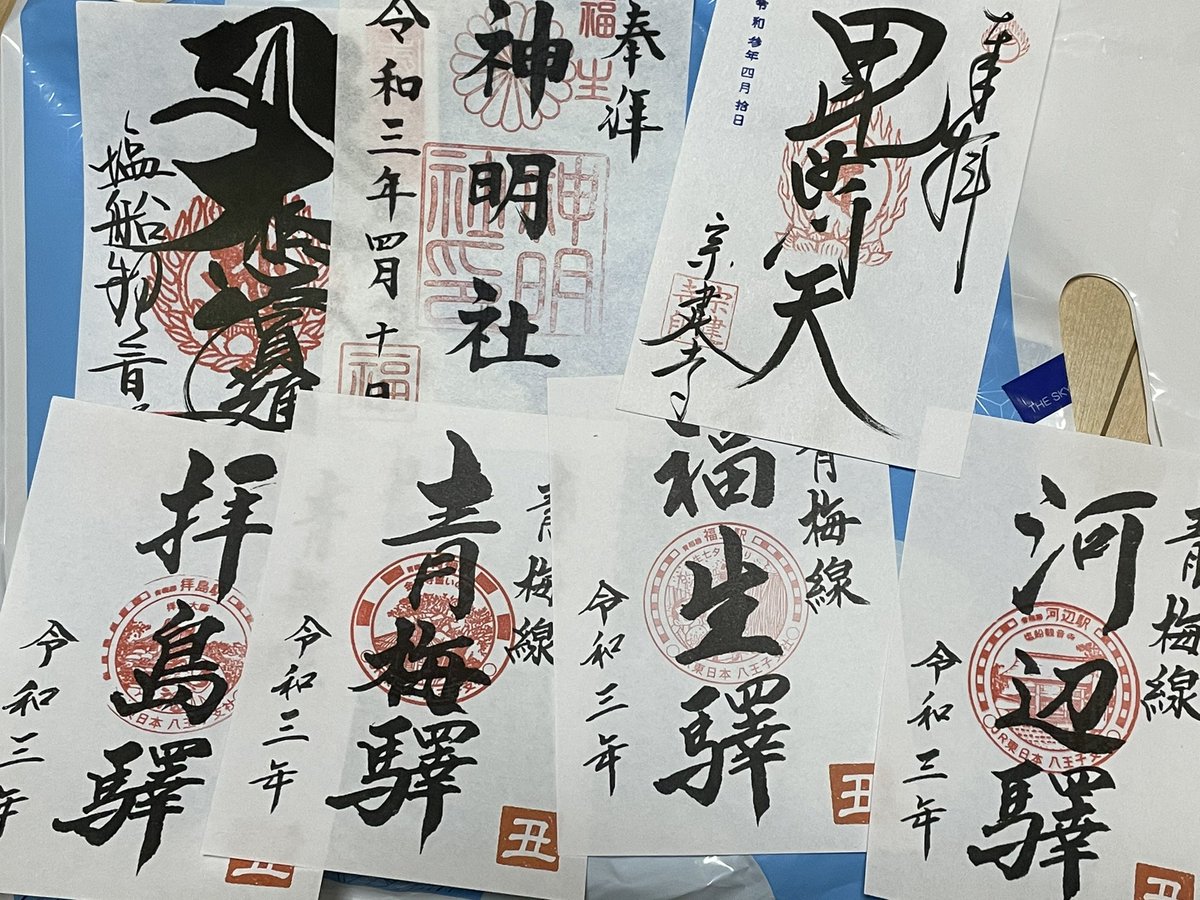 塩船観音
奉拝
福生
神明社
神明社印
令和三年四月十日
福
奉拝
毘沙門天
令和参年四月拾日
宗建寺
拝島驛
拝島駅
東日本 八王子支社
令和三年
丑
青梅線
青梅驛
令和三年
丑
青梅線
福生驛
福生駅
JR東日本 八王子支社
令和三年
丑
青梅線
河辺驛
河辺駅
塩船観音寺
JR東日本 八王子支社
令和三年
丑
THE SKY